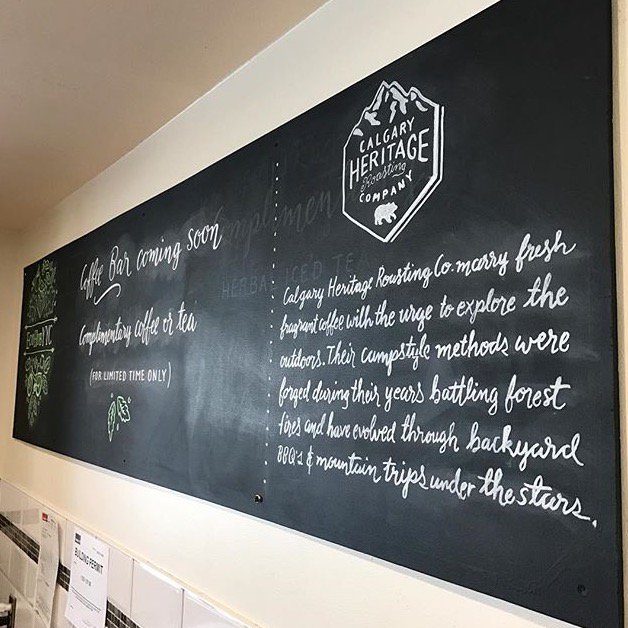 Coffee Bar coming soon
Complimentary coffee or tea
(FOR LIMITED TIME ONLY)
Complimen
HERBAL ICED TEA
CALGARY
HERITAGE
Roasting
COMPANY
Calgary Heritage Roasting Co. marry fresh
fragrant coffee with the urge to explore the
outdoors. Their campstyle methods were
forged during their years battling forest
fires and have evolved through backyard
BBQ's & mountain trips under the stars.
BUILDING PERMIT